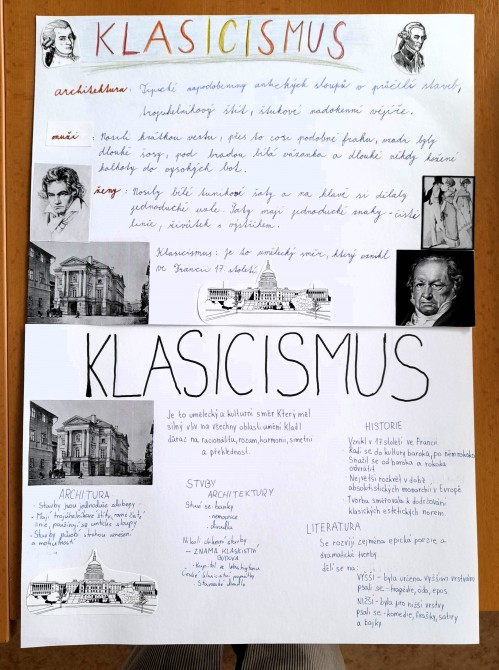 KLASICISMUS
architektura: Typické napodobeniny antických sloupů v průčelí staveb,
trojuhelníkový štít, štukové nadokenní vějíře.
muži: Nosili krátkou vestu, přes to cosi podobné fraku, moda byly
dlouhé , pod bradou bílá vázanka a dlouhé někdy kožené
kalhoty do vysokých bot.
ženy: Nosily bílé tunikové šaty a na hlavě si dělaly
jednoduché . Šaty mají jednoduché znaky - čisté
linie, živůtek s výstřihem.
Klasicismus: je to umělecký směr, který vznikl
ve Francii 17 století
KLASICISMUS
Je to umělecký a kulturní směr který měl
silný vliv na všechny oblasti umění kladl
důraz na racionalitu, rozum, harmonii, simetrii
a přehlednost.
ARCHITURA
- Stavby jsou jednoduše
- Mají trojúhelníkové štíty,
, používají se antické sloupy
- Stavby působí
a
STVBY
ARCHITEKTURY
Staví se: banky
- nemocnice
- divadla
stavby
- ZNÁMÁ KLASICISTNÍ
BUDOVA
- Kapitol ve Washingtonu
České klasicistní památky
Stavovské divadlo
HISTORIE
Vznikl v 17 století ve Francii
Řadí se do kultury baroka, po něm rokoko
Snažil se od baroka a rokoka
odvrátit
- Největší rozkvět v době
absolutistických monarchií v Evropě
- Tvorba směřovala k dodržování
klasických estetických norem
LITERATURA
Se rozvíjí zejména epická poezie a
dramatické tvorby
dělí se na:
VYŠŠÍ - byla určena vyšším vrstvám
psali se - tragédie, óda, epos
NIŽŠÍ - byla pro nižší vrstvy
psali se - komedie, frašky, satiry
a bajky